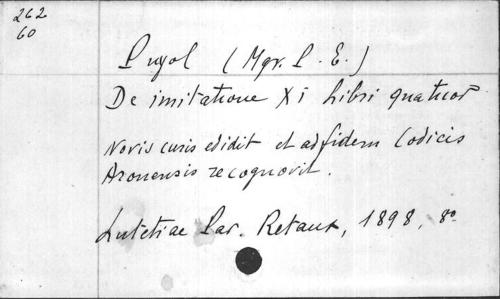 262
60
Puyol (Mgr. P. E.)
De imitatione Xi libri quatuor
Novis curis edidit et ad fidem Codicis
Aronensis recognovit.
Lutetiae Par. Retaux, 1898, 8o.